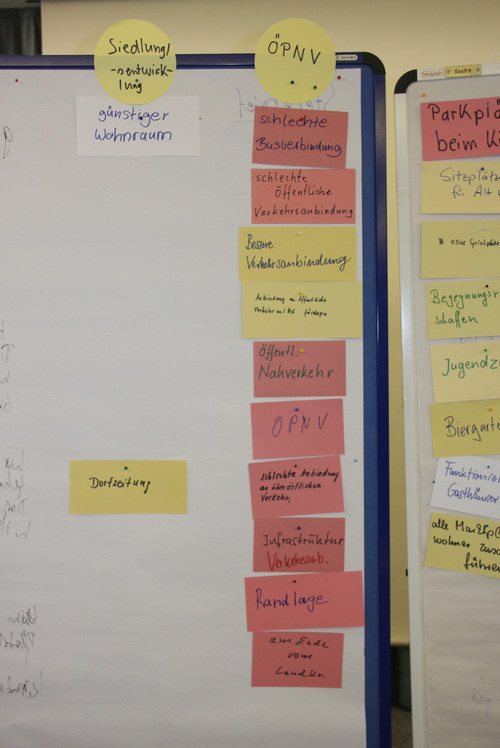 Siedlungs
-nentwick-
lung
günstiger
Wohnraum
Dorfzeitung
ÖPNV
schlechte
Busverbindung
schlechte
öffentliche
Verkehrsanbindung
Bessere
Verkehrsanbindung
Anbindung an öffentliche
Verkehrsmittel fördern
öffentl.
Nahverkehr
ÖPNV
schlechte Anbindung
an überörtlichen
Verkehr
Infrastruktur
Verkehrsanb.
Randlage
am Ende
vom
Landkr.
Parkplä
beim Ki
Sitzplätz
für Alt
neue Spielplätze
Begegnungs
schaffen
Jugendz
Biergart
Funktionie
Gasthäuser
alle
wohner
führe